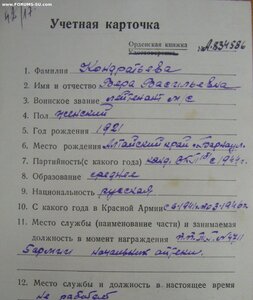 www.FORUMS-SU.com
Учетная карточка
Орденская книжка № А.834586
Удостоверение
1. Фамилия Кондратьева
2. Имя и отчество Вера Васильевна
3. Воинское звание лейтенант м/с
4. Пол женский
5. Год рождения 1921
6. Место рождения Алтайский край г. Барнаул
7. Партийность (с какого года) канд. ВКП(б) с 1944 г.
8. Образование среднее
9. Национальность русская
10. С какого года в Красной Армии с 1941 по 1946 г.
11. Место службы (наименование части) и занимаемая
должность в момент награждения
5 армии начальник аптеки
12. Место службы и должность в настоящее
время не работает